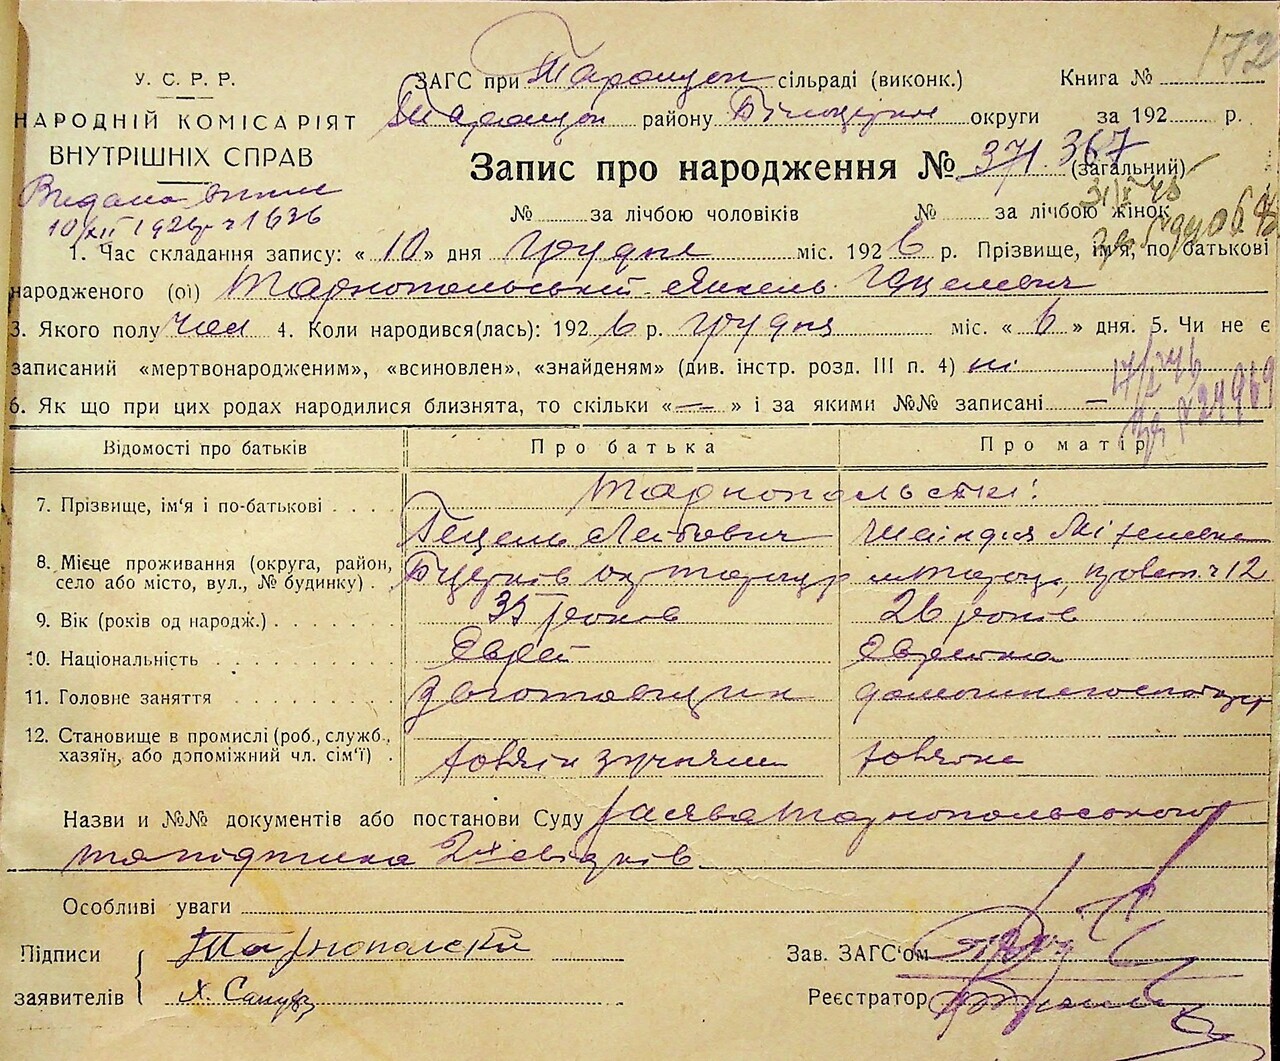 172
У. С. Р. Р.
НАРОДНІЙ КОМІСАРІЯТ
ВНУТРІШНІХ СПРАВ
ЗАГС при Таращан сільраді (виконк.) Книга №
Таращан району Білоцерків округи за 192 р.
Запис про народження № 371. 367 (загальний)
Видана
10/XII 1926 р ч 1636
№ за лічбою чоловіків № за лічбою жінок
1. Час складання запису: « 10 » дня грудня міс. 1926 р. Прізвище, ім'я, по батькові
народженого (ої) Тарнопольський Янкель Гецелевич
3. Якого полу чол 4. Коли народився(лась): 1926 р. грудня міс. « 6 » дня. 5. Чи не є
записаний «мертвонародженим», «всиновлен», «знайденям» (див. інстр. розд. III п. 4) ні
6. Як що при цих родах народилися близнята, то скільки «—» і за якими №№ записані —
Відомості про батьків Про батька Про матір
7. Прізвище, ім'я і по-батькові Тарнопольські:
Гецель Лейбович
8. Місце проживання (округа, район,
село або місто, вул., № будинку) ч 12
9. Вік (років од народж.) 35 років 26 років
10. Національність Єврей Єврейка
11. Головне заняття
12. Становище в промислі (роб., служб.,
хазяїн, або допоміжний чл. сім'ї)
Назви и №№ документів або постанови Суду заява Тарнопольського
та підписка 2х свідків.
Особливі уваги
Підписи Тарнополски Зав. ЗАГС'ом
заявителів Х. Реєстратор